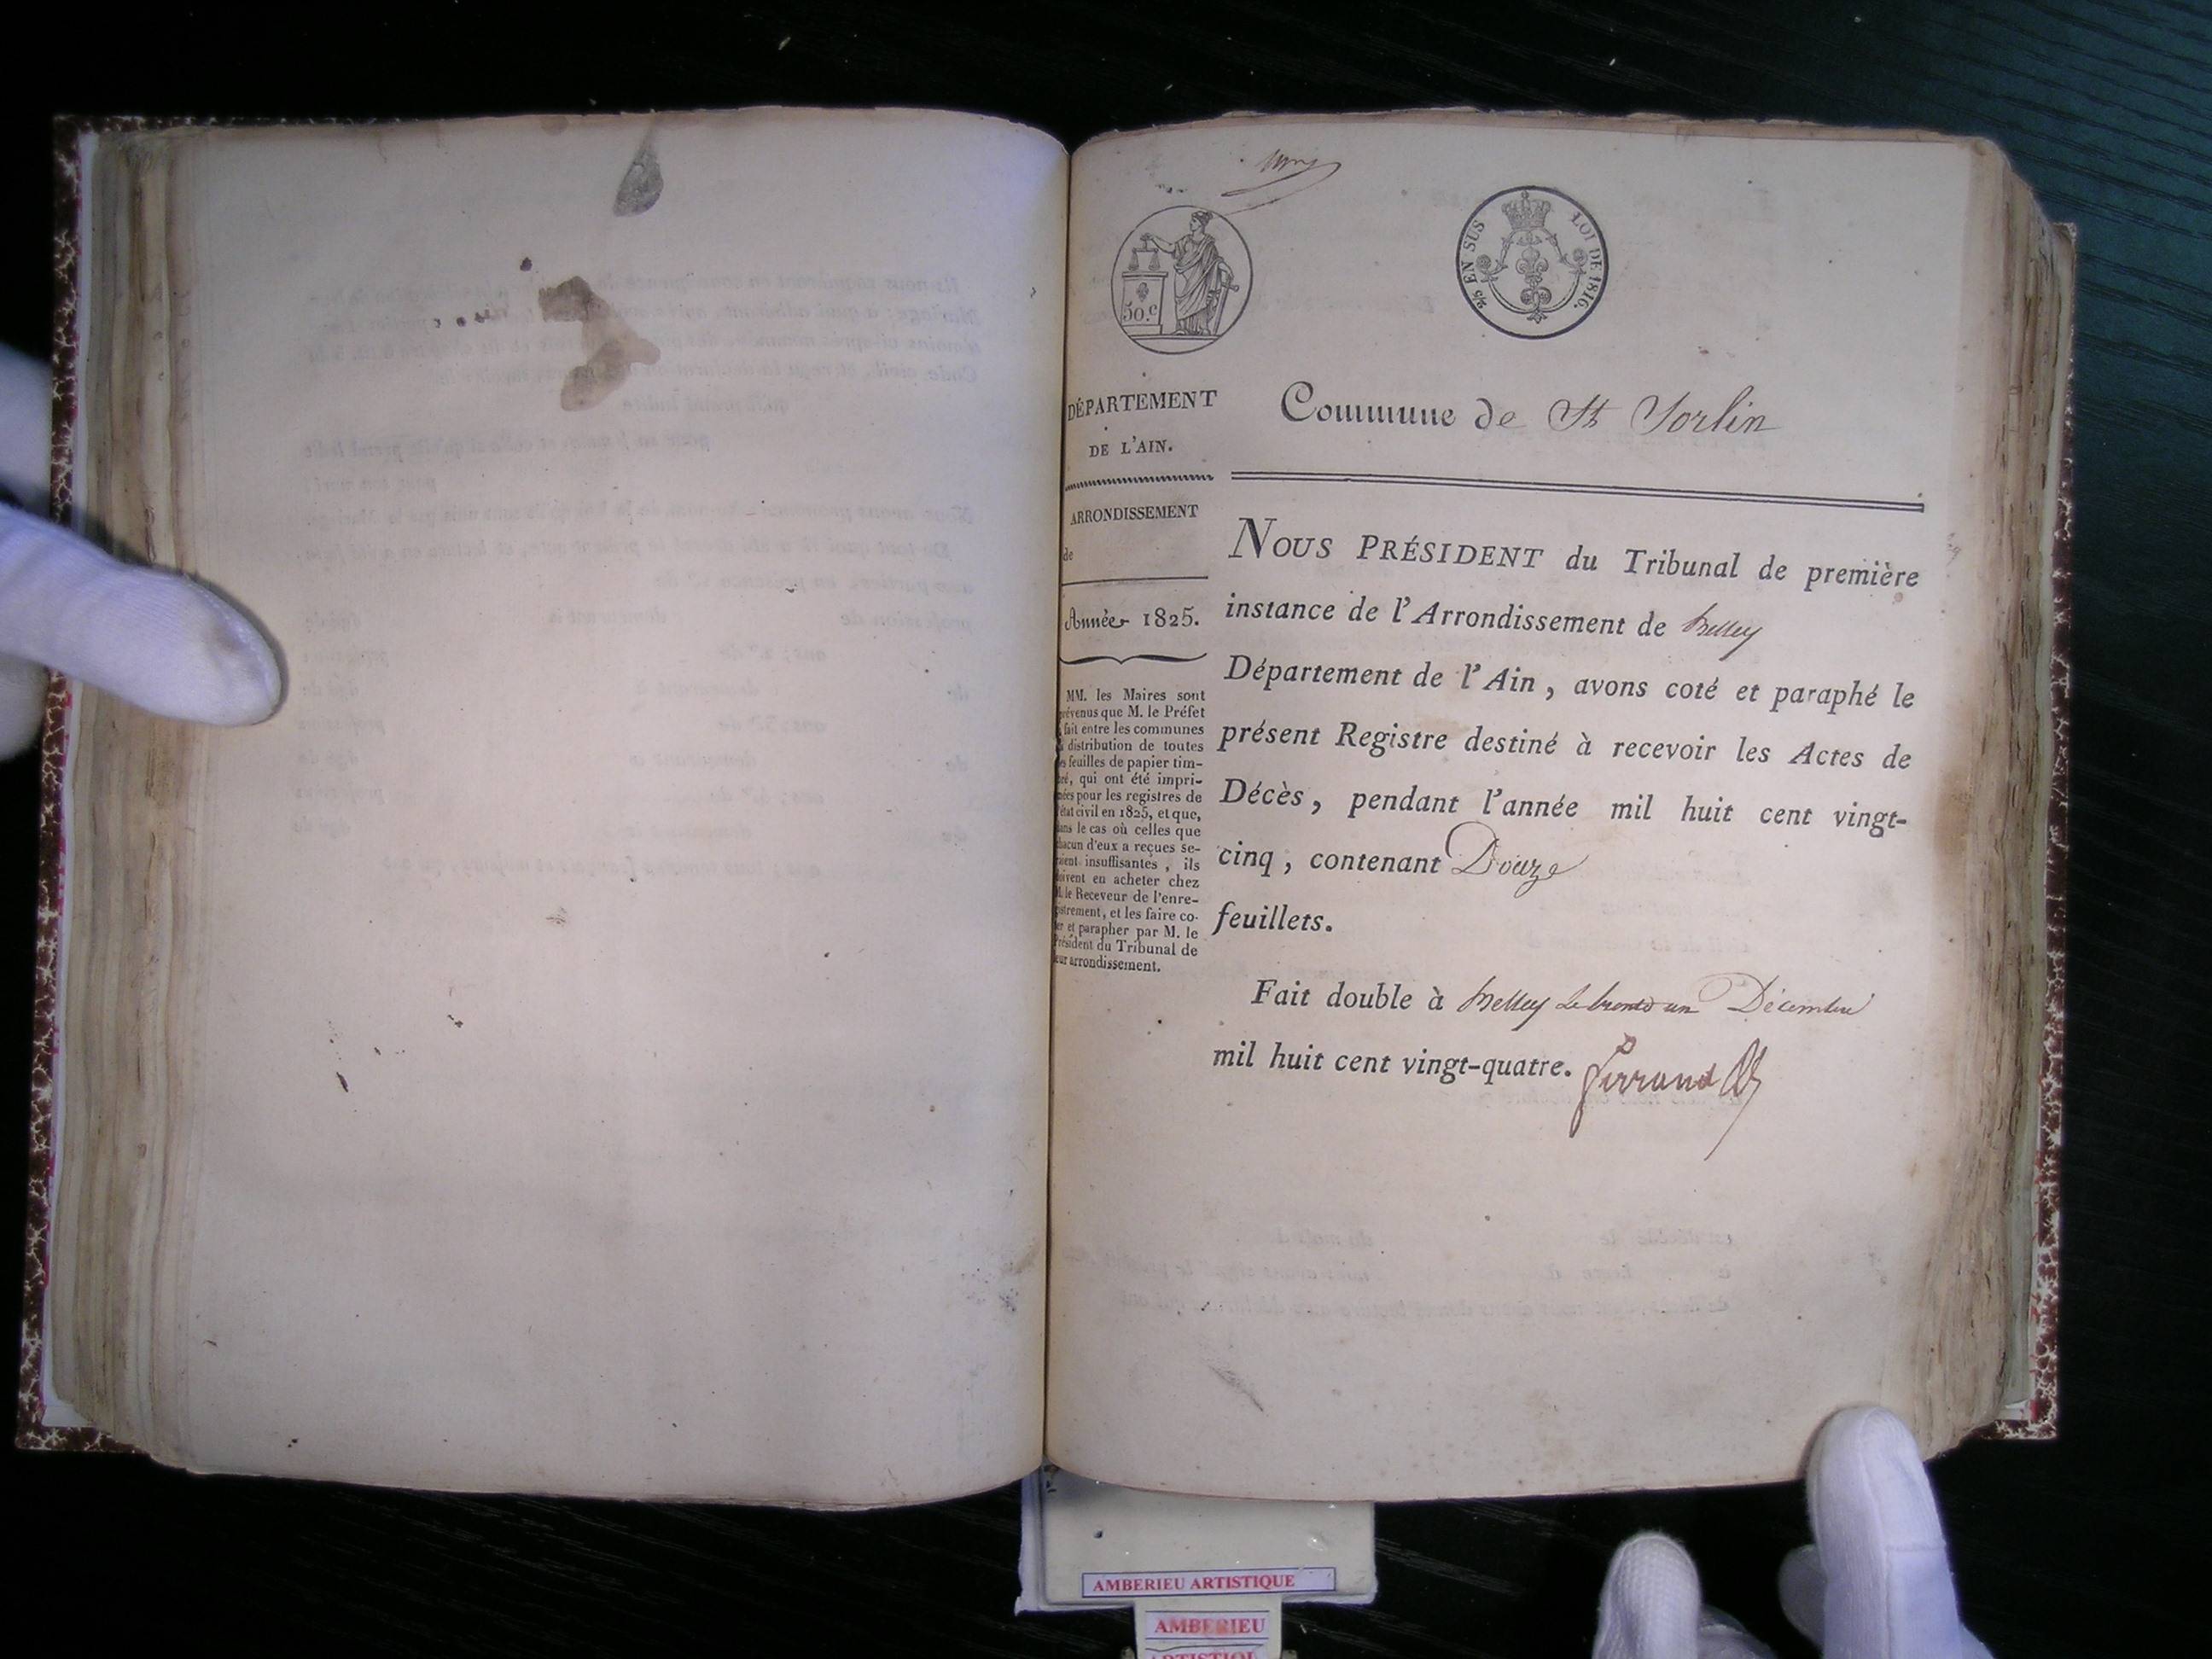 50.c
2/5 EN SUS LOI DE 1816.
DÉPARTEMENT
DE L'AIN.
ARRONDISSEMENT
de
Année 1825.
MM. les Maires sont
prévenus que M. le Préfet
fait entre les communes
distribution de toutes
feuilles de papier tim-
bré, qui ont été impri-
mées pour les registres de
l'état civil en 1825, et que,
dans le cas où celles que
chacun d'eux a reçues se-
raient insuffisantes, ils
doivent en acheter chez
M. le Receveur de l'enre-
gistrement, et les faire co-
ter et parapher par M. le
Président du Tribunal de
leur arrondissement.
Commune de St Sorlin
NOUS PRÉSIDENT du Tribunal de première
instance de l'Arrondissement de Belley
Département de l'Ain, avons coté et paraphé le
présent Registre destiné à recevoir les Actes de
Décès, pendant l'année mil huit cent vingt-
cinq, contenant Douze
feuillets.
Fait double à Belley Le trente un Décembre
mil huit cent vingt-quatre.
AMBERIEU ARTISTIQUE
AMBERIEU
ARTISTIQUE